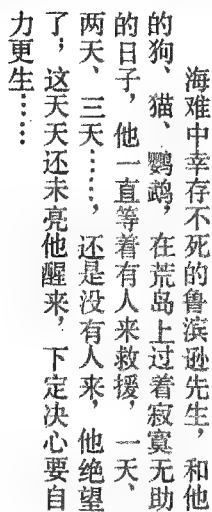 海难中幸存不死的鲁滨逊先生，和他
的狗、猫、鹦鹉，在荒岛上过着寂寞无助
的日子，他一直等着有人来救援，一天、
两天、三天……，还是没有人来，他绝望
了；这天天还未亮他醒来，下定决心要自
力更生……